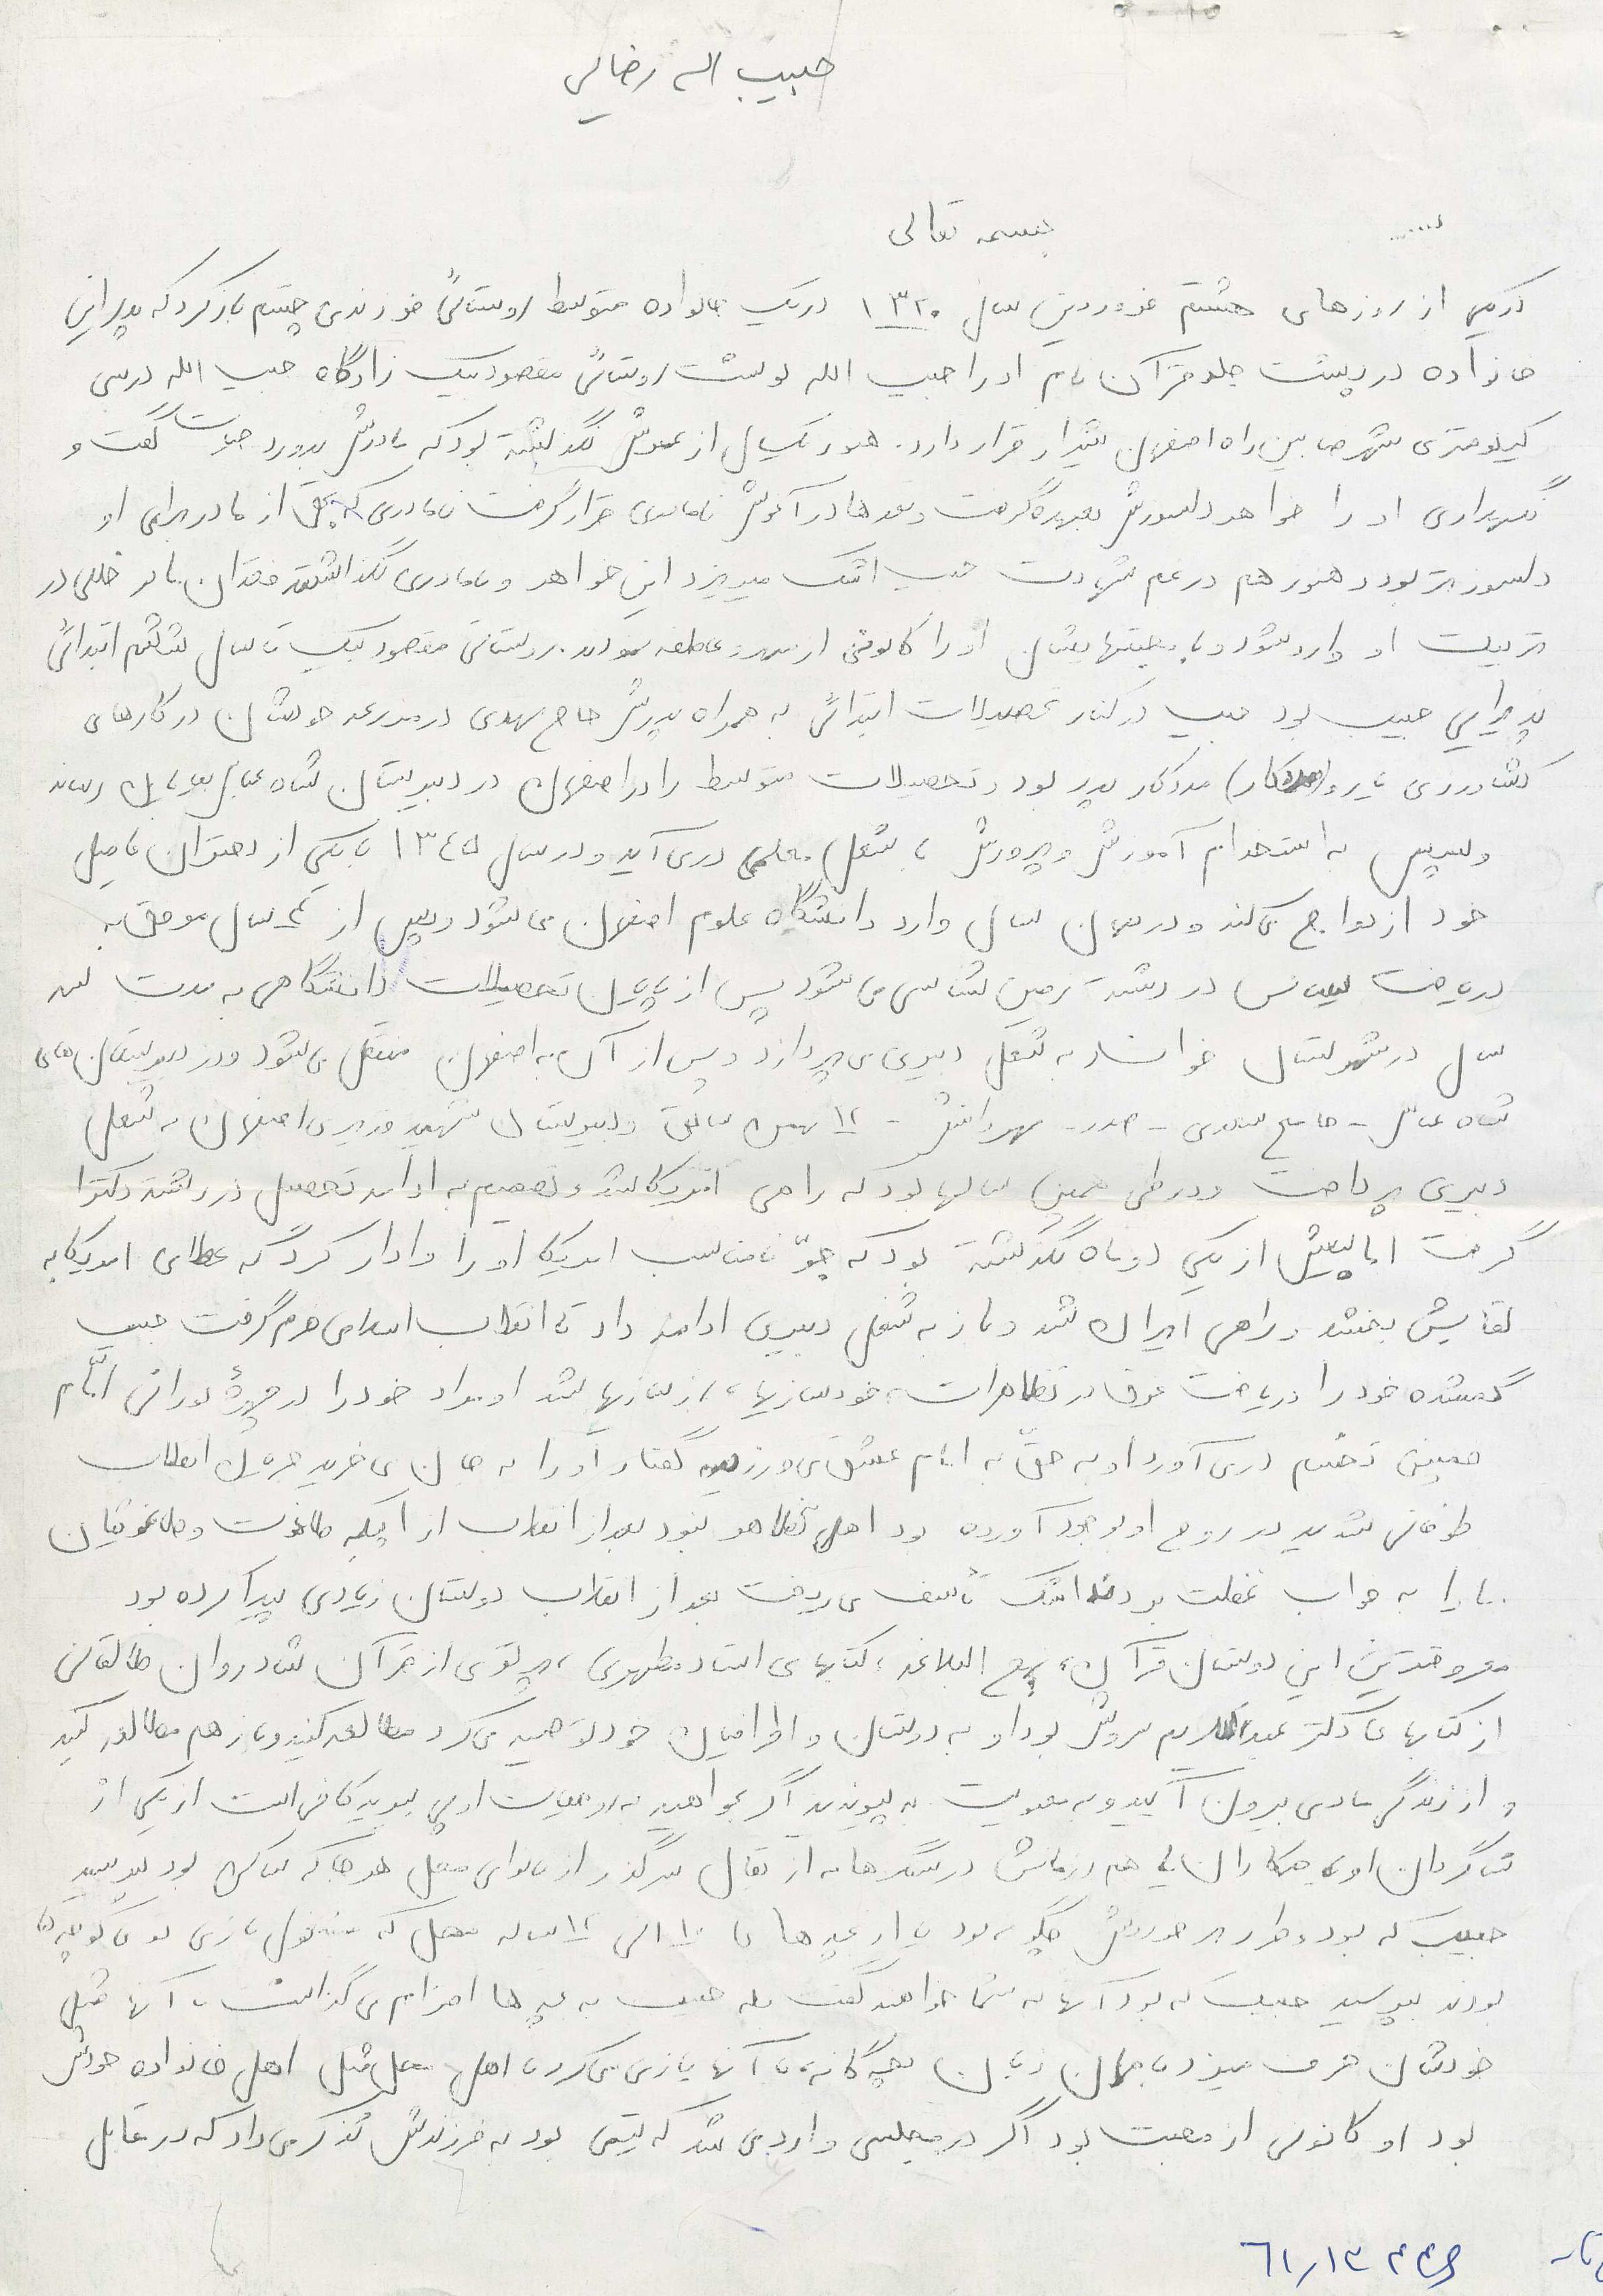 حبیب اله رضایی
بسمه تعالی
در یکی از روزهای هشتم فروردین سال ۱۳۲۰ در یک خانواده متوسط روستائی فرزندی چشم باز کرد که پدر این
خانواده در پشت جلد قرآن نام او را حبیب الله نوشت روستائی مقصودبیک زادگاه حبیب الله در سی
کیلومتری شهرضا بین راه اصفهان شیراز قرار دارد. هنوز یکسال از عمرش نگذشته بود که مادرش بدرود حیات گفت و
نگهداری او را خواهر دلسوزش بعهده گرفت و بعدها در آغوش نامادری قرار گرفت نامادری که بحق از مادر برای او
دلسوزتر بود و هنوز هم در غم شهادت حبیب اشک میریزد این خواهر و نامادری نگذاشتند فقدان مادر خللی در
تربیت او وارد شود و با محبتهایشان او را کانونی از مهر و عاطفه نمودند. روستائی مقصودبیک تا سال ششم ابتدائی
پذیرایی حبیب بود حبیب در کنار تحصیلات ابتدائی به همراه پدرش حاج مهدی در مزرعه خودشان در کارهای
کشاورزی یار و مددکار پدر بود و تحصیلات متوسط را در اصفهان در دبیرستان شاه عباس به پایان رساند
و سپس به استخدام آموزش و پرورش با شغل معلمی در می آید و در سال ۱۳٤٥ با یکی از دختران فامیل
خود ازدواج می کند و در همان سال وارد دانشگاه علوم اصفهان می شود و پس از سال موفق به
دریافت لیسانس در رشته زمین شناسی می شود پس از پایان تحصیلات دانشگاهی به مدت سه
سال در شهرستان خوانسار به شغل دبیری می پردازد و پس از آن به اصفهان منتقل می شود و در دبیرستان های
شاه عباس - صالح سعدی - صدر - مهر دانش - ۱۲ بهمن سابق و دبیرستان شهید وزیری اصفهان به شغل
دبیری پرداخت و در طی همین سالها بود که راهی امریکا شد و تصمیم به ادامه تحصیل در رشته دکترا
گرفت اما بیش از یکی دو ماه نگذشته بود که جو نامناسب امریکا او را وادار کرد که عطای امریکا به
لقایش بخشد و راهی ایران شد و باز به شغل دبیری ادامه داد تا انقلاب اسلامی فرم گرفت حبیب
گمشده خود را دریافت غرق در تظاهرات، خودسازیها، بازسازیها شد او مراد خود را در چهرهٔ نورانی امام
خمینی تجسم در می آورد او به حق به امام عشق می ورزید گفتار او را به جان می خرید جریان انقلاب
طوفانی شدید در روح او بوجود آورده بود اهل تظاهر نبود بعد از انقلاب از اینکه طاغوت و طاغوتیان
ما را به خواب غفلت بردند اشک تأسف می ریخت بعد از انقلاب دوستان زیادی پیدا کرده بود
معروفترین این دوستان قرآن، نهج البلاغه، کتابهای استاد مطهری، پرتوی از قرآن شادروان طالقانی
از کتابهای دکتر عبدالکریم سروش بود او به دوستان و اطرافیان خود توصیه می کرد مطالعه کنید و باز هم مطالعه کنید
و از زندگی مادی بیرون آیید و به معنویت به پیوندید اگر بخواهید به روحیات او پی ببرید کافی است از یکی از
شاگردان او یا همکاران یا هم رزمانش در سنگرها یا از بقال سرگذر از نانوای محل هرجا که ساکن بود بپرسید
حبیب که بود و طرز برخوردش چگونه بود یا از بچه ها ی ۱۰ الی ۱۲ ساله محل که مشغول بازی توی کوچه ها
بودند بپرسید حبیب که بود آنها به شما خواهند گفت بله حبیب به بچه ها احترام می گذاشت با آنها مثل
خودشان حرف میزد با همان زبان بچه گانه با آنها بازی می کرد با اهل محل مثل اهل خانواده خودش
بود او کانونی از محبت بود اگر در مجلسی وارد می شد که یتیمی بود به فرزندش تذکر می داد که در مقابل